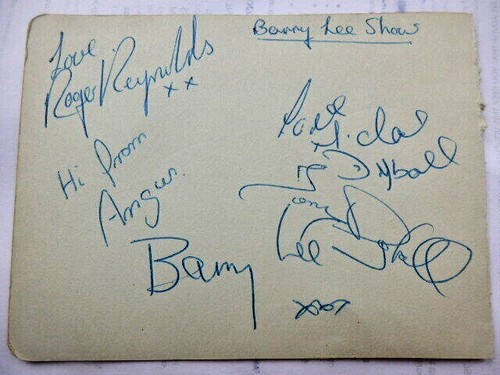 Barry Lee Show
Love
Roger Reynolds
xx
Hi from
Angus.
Love
Dyball
Tony D
Barry Lee
xxx